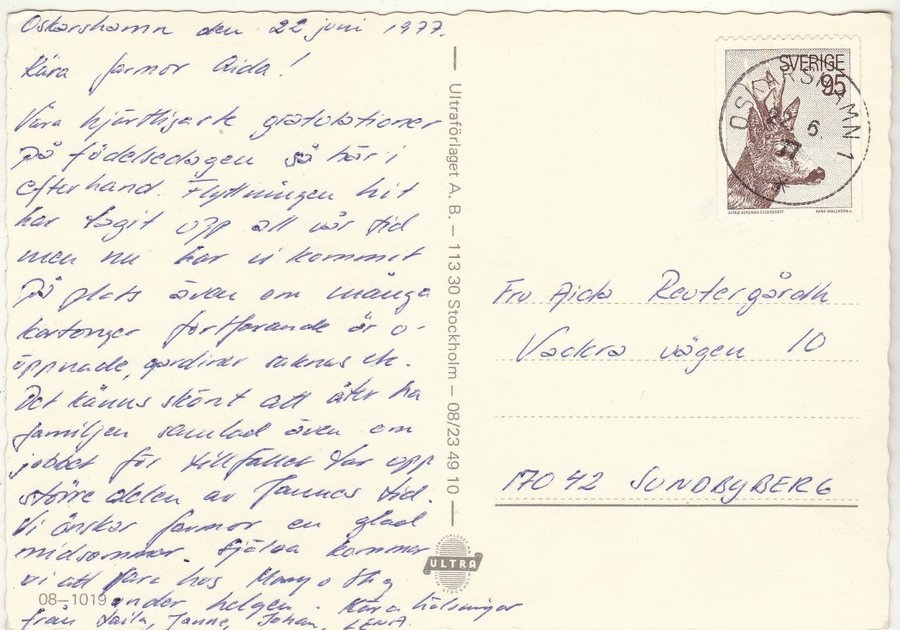 Oskarshamn den 22 juni 1977.
Kära farmor Aida!
Våra hjärtligaste gratulationer
på födelsedagen så här i
efterhand. Flyttningen hit
har tagit opp all vår tid
men nu har vi kommit
på plats även om många
kartonger fortfarande är o-
öppnade, gardiner saknas etc.
Det känns skönt att åter ha
familjen samlad även om
jobbet för tillfället tar opp
större delen av Jannes tid.
Vi önskar farmor en glad
midsommar. Själva kommer
vi att vara hos Many o Stig
under helgen. Kära hälsningar
från Laila, Janne, Johan, LENA.
08-1019
Ultraförlaget A. B. – 113 30 Stockholm – 08/23 49 10
ULTRA
SVERIGE
95
OSKARSHAMN 1
22 6
77
ASTRID BERGMAN SUCKSDORFF
ARNE WALLHORN SC
Fru Aida Reutergårdh
Vackra vägen 10
170 42 SUNDBYBERG